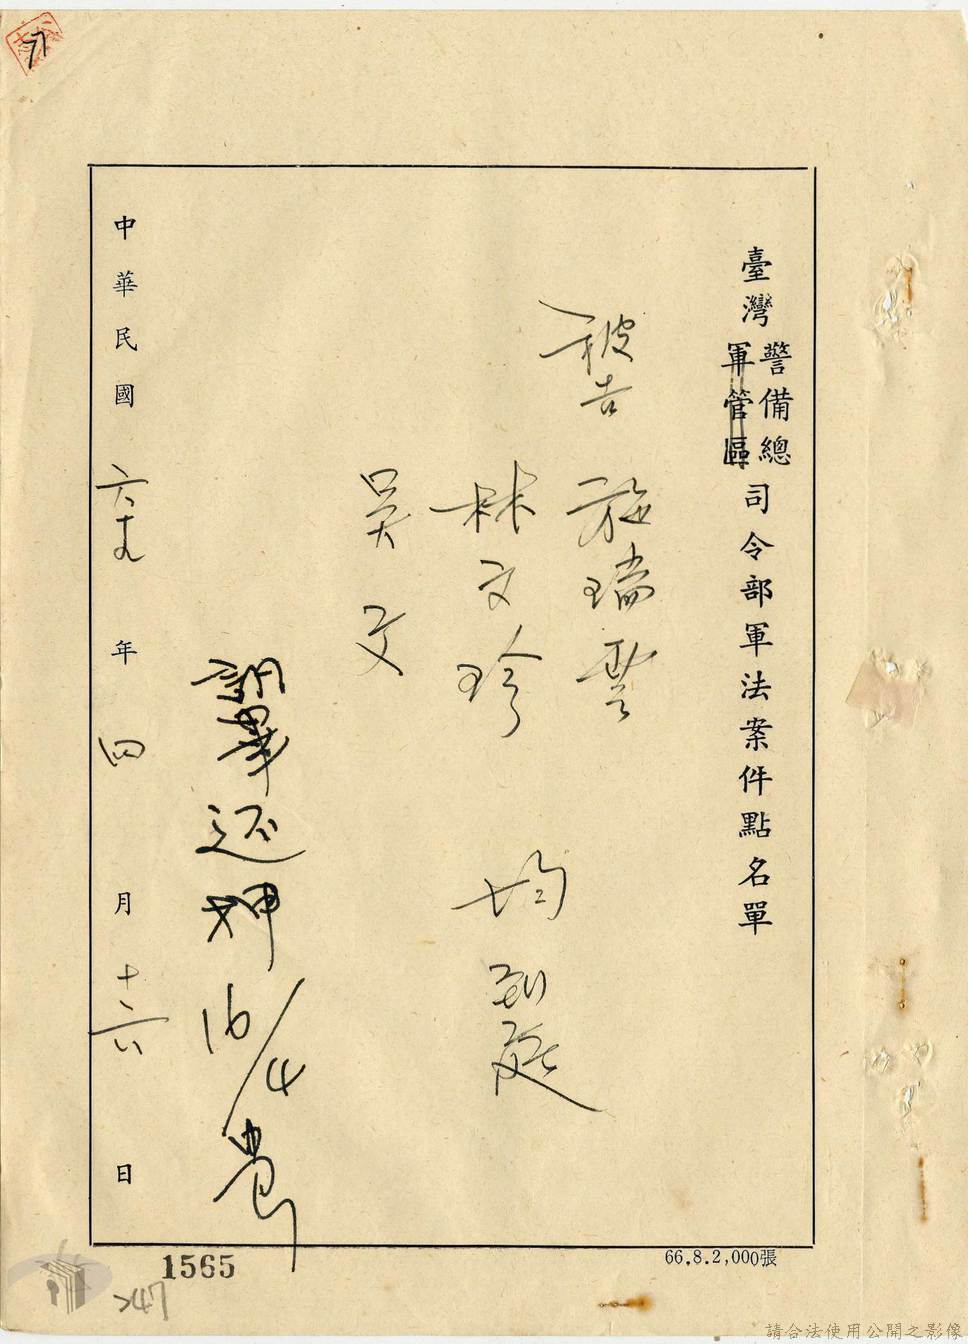 臺灣警備總軍管區司令部軍法案件點名單
被告
施瑞雲
林文珍 均到庭
吳文
訊畢還押 16/4
中華民國六十九年四月十六日
77
1565
247
66.8.2,000張
請合法使用公開之影像